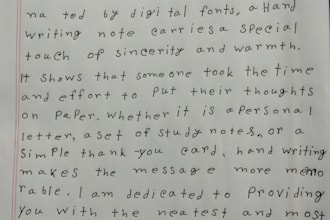 na ted by digital fonts, a Hand
writing note carries a special
touch of sincerity and warmth.
It shows that someone took the time
and effort to put their thoughts
on paper. whether it is a personal
letter, a set of study notes, or a
simple thank-you card, hand writing
makes the message more memo
rable. I am dedicated to providing
you with the neatest and most